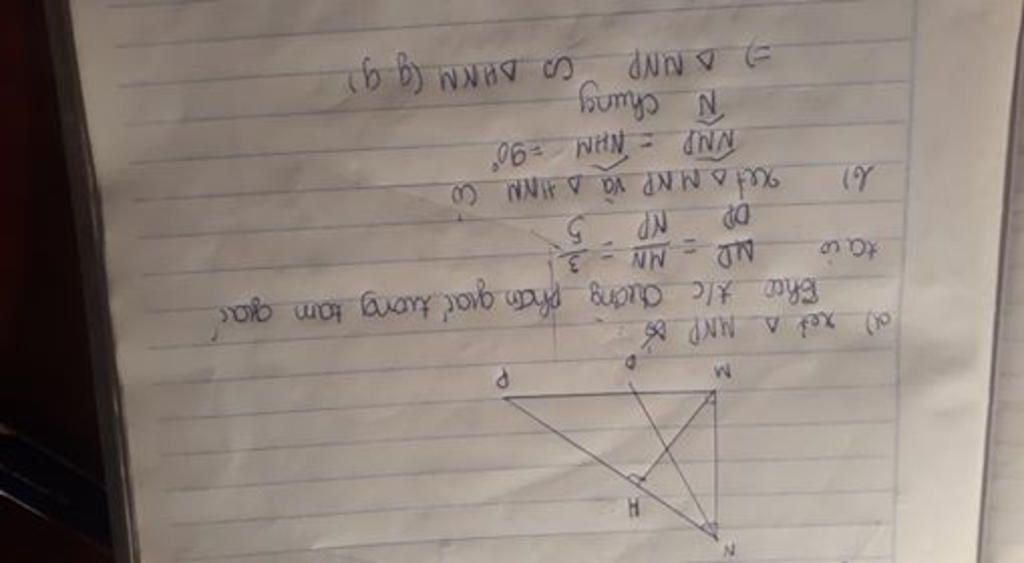 N
H
M
D
P
a) xét Δ MNP
theo t/c đường phân giác trong tam giác
ta có MD/DP = MN/NP = 3/5
b) xét Δ MNP và Δ HNM có
NMP = NHM = 90°
N chung
=) Δ MNP ∽ Δ HNM (g g)